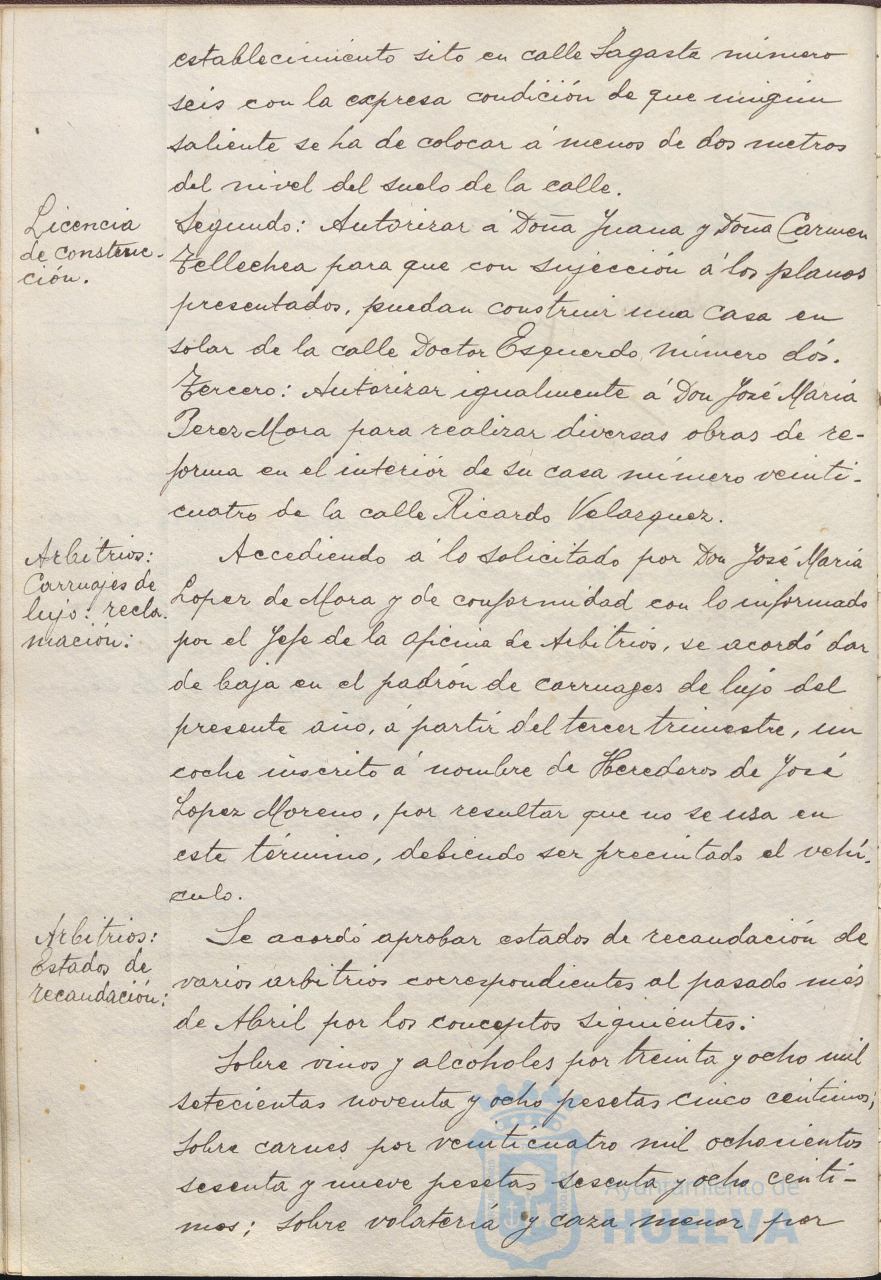 establecimiento sito en calle Sagasta número
seis con la expresa condición de que ningún
saliente se ha de colocar á menos de dos metros
del nivel del suelo de la calle.
Licencia
de construc-
ción.
Segundo: Autorizar á Doña Juana y Doña Carmen
Tellechea para que con sujección á los planos
presentados, puedan construir una casa en
solar de la calle Doctor Esquerdo, número dós.
Tercero: Autorizar igualmente á Don José María
Perez Mora para realizar diversas obras de re-
forma en el interiór de su casa número veinti-
cuatro de la calle Ricardo Velazquez.
Arbitrios:
Carruajes de
lujo: recla-
mación:
Accediendo á lo solicitado por Don José María
Lopez de Mora y de conformidad con lo informado
por el Jefe de la oficina de Arbitrios, se acordó dar
de baja en el padrón de carruages de lujo del
presente año, á partir del tercer trimestre, un
coche inscrito á nombre de Herederos de José
Lopez Moreno, por resultar que no se usa en
este término, debiendo ser precintado el vehí-
culo.
Arbitrios:
Estados de
recaudación:
Se acordó aprobar estados de recaudación de
varios arbitrios correspondientes al pasado més
de Abril por los conceptos siguientes:
Sobre vinos y alcoholes por treinta y ocho mil
setecientas noventa y ocho pesetas cinco centimos;
sobre carnes por veinticuatro mil ochocientos
sesenta y nueve pesetas sesenta y ocho centi-
mos; sobre volatería y caza menor por
Ayuntamiento de
HUELVA